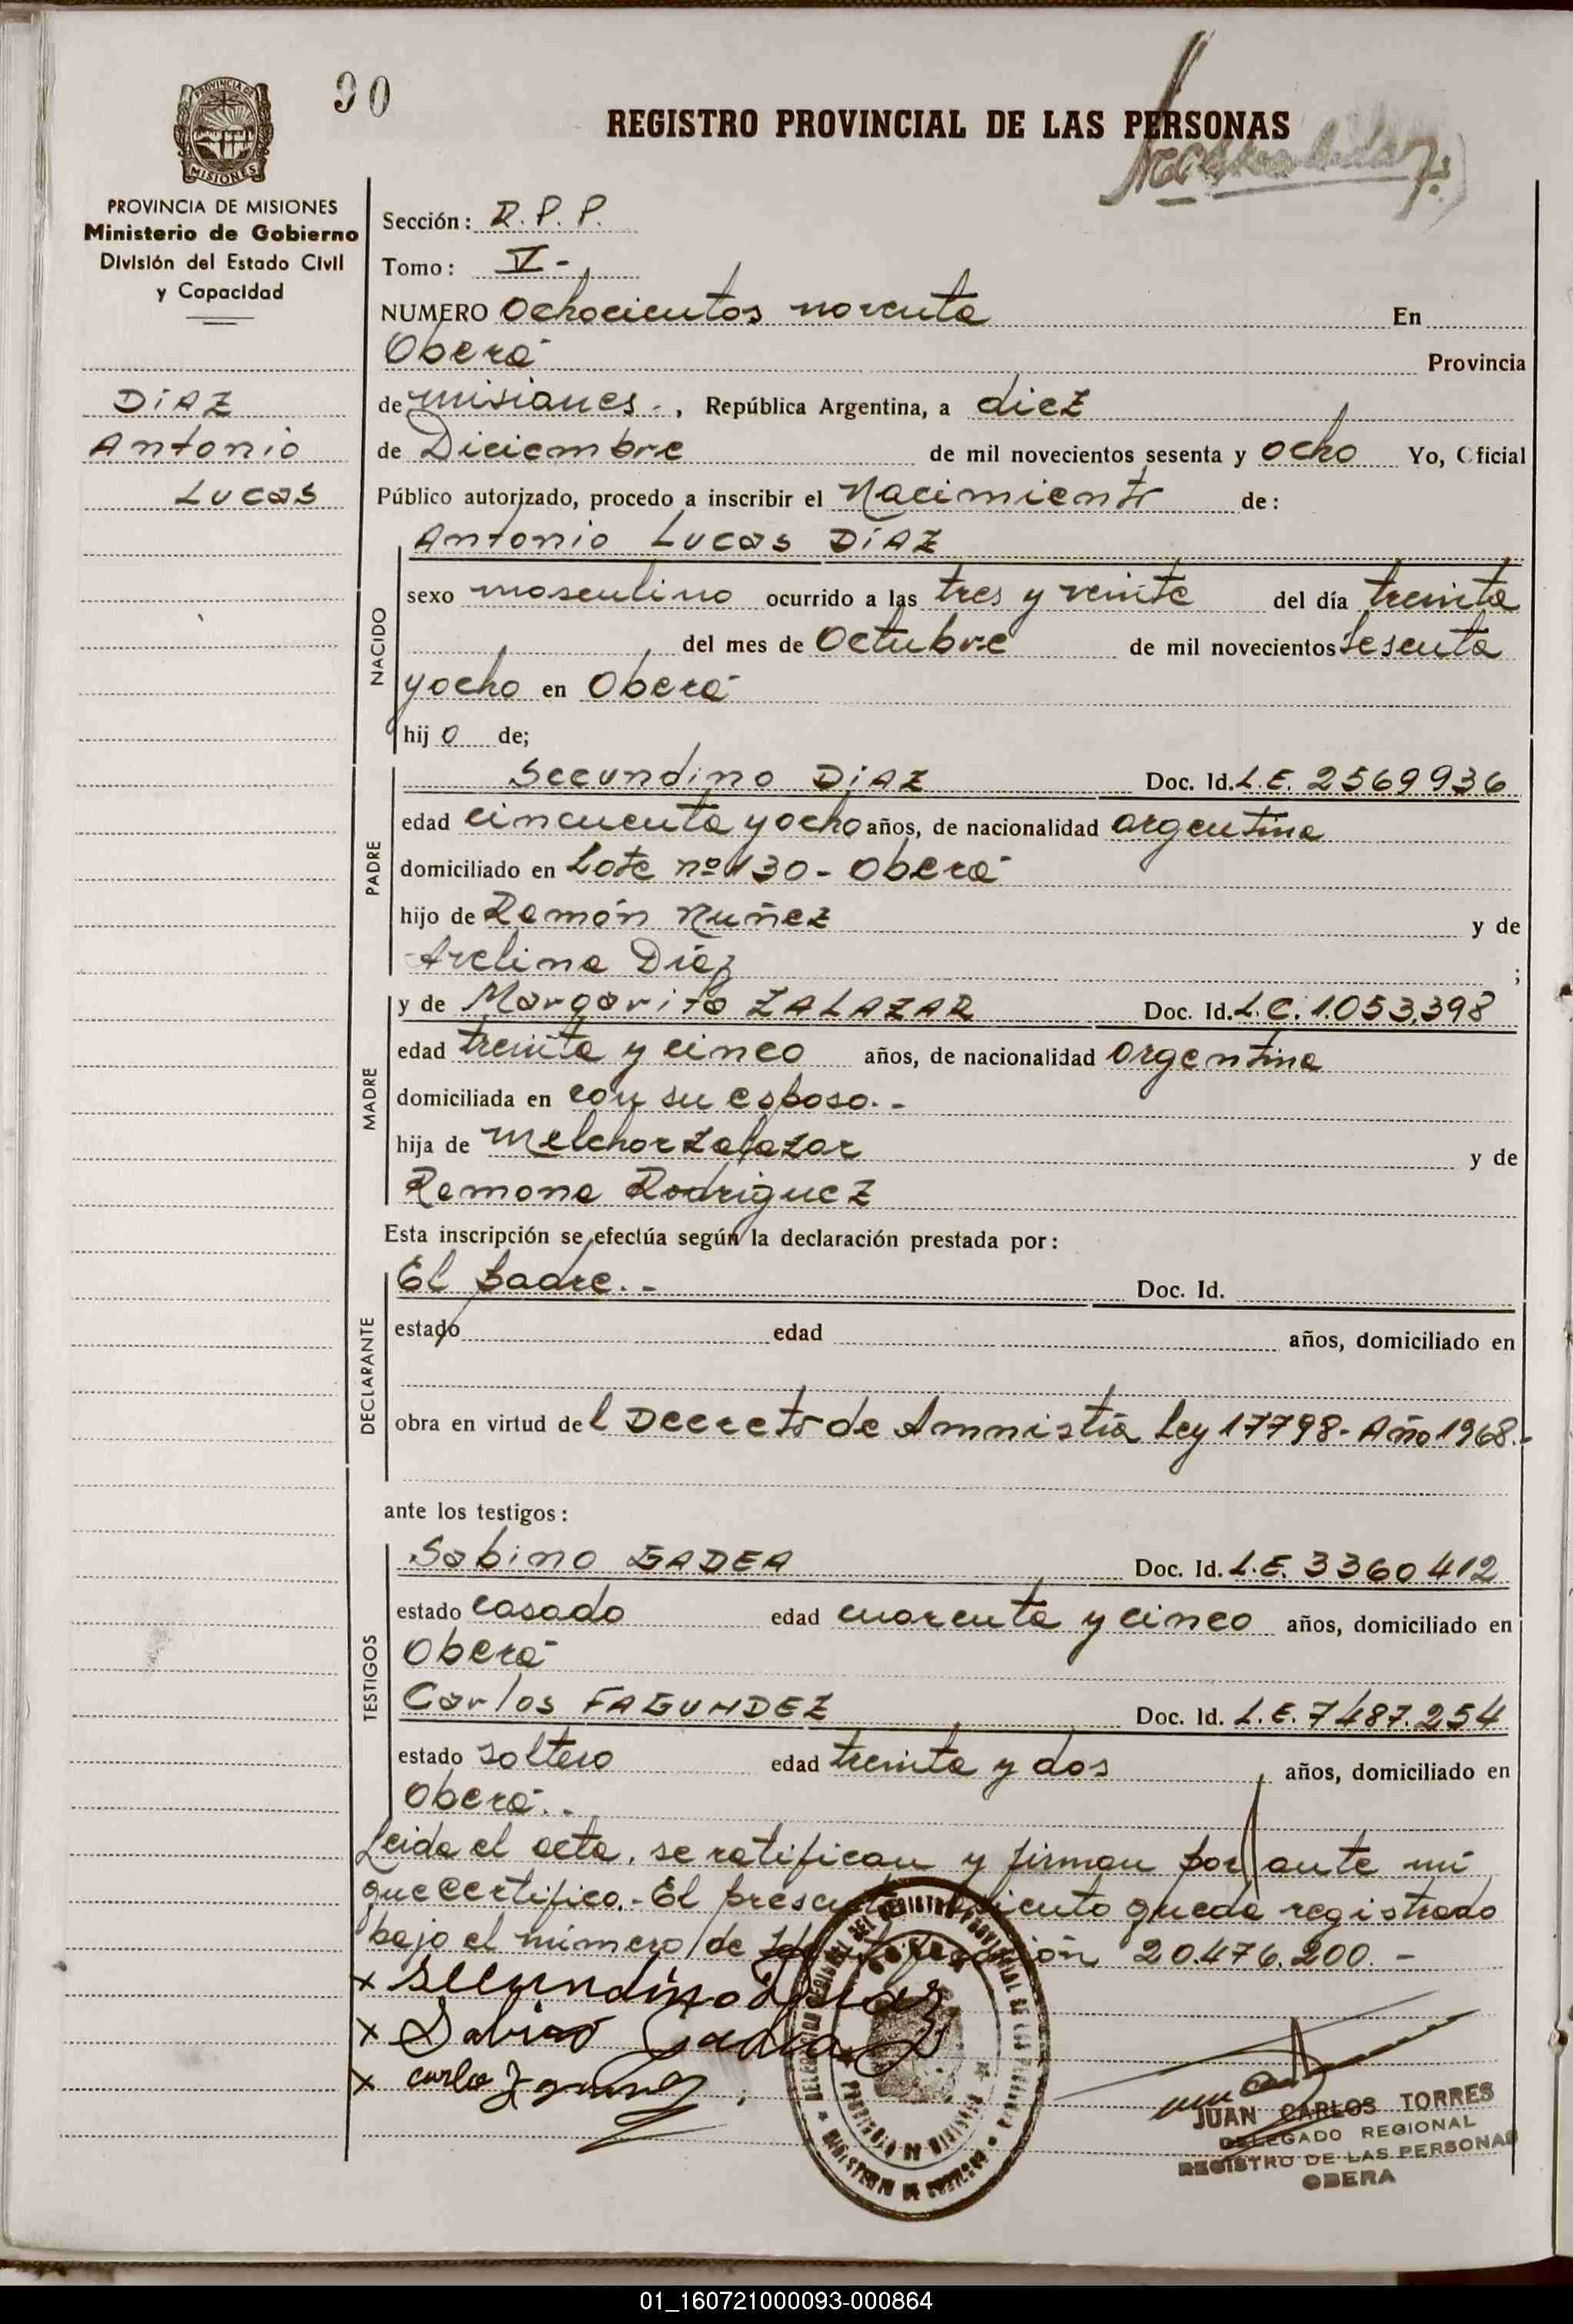 90
REGISTRO PROVINCIAL DE LAS PERSONAS
PROVINCIA DE MISIONES
MISIONES
PROVINCIA DE MISIONES
Ministerio de Gobierno
División del Estado Civil
y Capacidad
DíAZ
Antonio
Lucas
Sección: R. P. P.
Tomo: V -
NUMERO Ochocientos noventa En
Oberá Provincia
de misiones -, República Argentina, a diez
de Diciembre de mil novecientos sesenta y ocho Yo, Oficial
Público autorizado, procedo a inscribir el Nacimiento de:
Antonio Lucas DíAZ
NACIDO
sexo masculino ocurrido a las tres y veinte del día treinta
del mes de Octubre de mil novecientos sesenta
y ocho en Oberá
hij o de;
PADRE
Secundino DíAZ Doc. Id. L.E. 2569936
edad cincuenta y ocho años, de nacionalidad argentina
domiciliado en Lote nº 130 - Oberá
hijo de Ramón Nuñez y de
Avelina Díaz ;
MADRE
y de Margarita ZALAZAR Doc. Id. L.C. 1.053.398
edad treinta y cinco años, de nacionalidad argentina
domiciliada en con su esposo. -
hija de Melchor Zalazar y de
Ramona Rodriguez
Esta inscripción se efectúa según la declaración prestada por:
DECLARANTE
El padre. - Doc. Id.
estado edad años, domiciliado en
obra en virtud del Decreto de Amnistía Ley 17798 - Año 1968.-
ante los testigos:
TESTIGOS
Sabino GADEA Doc. Id. L.E. 3360412
estado casado edad cuarenta y cinco años, domiciliado en
Oberá
Carlos FAGUNDEZ Doc. Id. L.E. 7487.254
estado soltero edad treinta y dos años, domiciliado en
Oberá. -
Leida el acta, se ratifican y firman por ante mi
que certifico. - El presente nacimiento queda registrado
bajo el número de Identificación 20.476.200. -
x Secundino Diaz
x Sabino Gadea
x Carlo
JUAN CARLOS TORRES
DELEGADO REGIONAL
REGISTRO DE LAS PERSONAS
OBERA
01_160721000093-000864